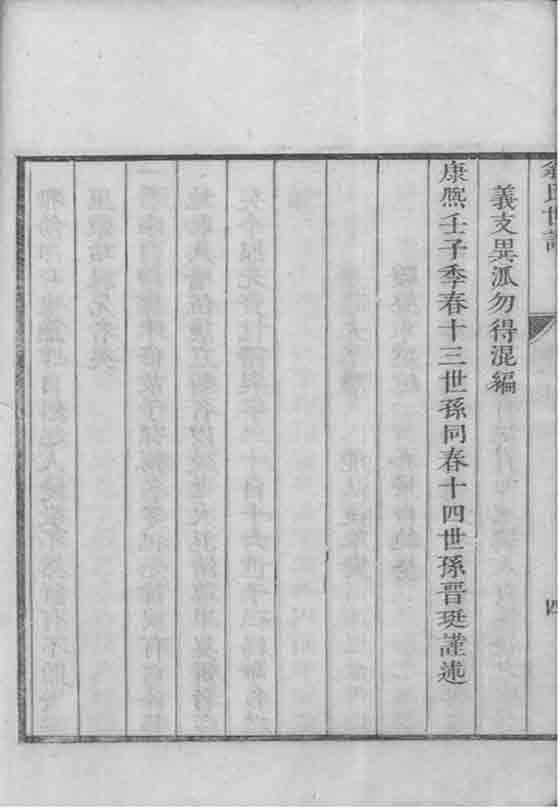 氏世譜
四
義支異派勿得混編
康熙壬子季春十三世孫同春十四世孫晋珽謹述